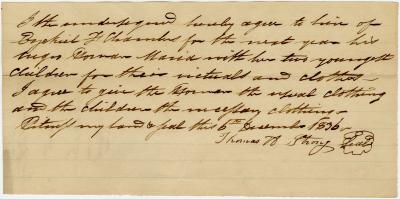 I the undersigned hereby agree to hire of
Ezekiel F Chambers for the next year his
negro Woman Maria with her two youngest
Children for their victuals and clothes –
I agree to give the Woman the usual clothing
and the children the necessary clothing –
Witness my hand & seal this 6th December 1836 –
Thomas W Strong Seal